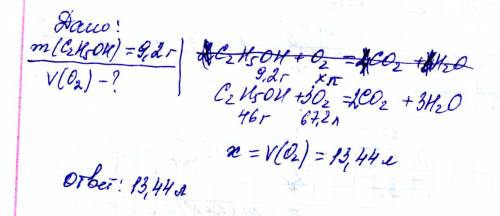 Дано:
m(C₂H₅OH) = 9,2 г
V(O₂) - ?
C₂H₅OH + O₂ = CO₂ + H₂O
9,2 г x л
C₂H₅OH + 3O₂ = 2CO₂ + 3H₂O
46 г 67,2 л
x = V(O₂) = 13,44 л
Ответ: 13,44 л